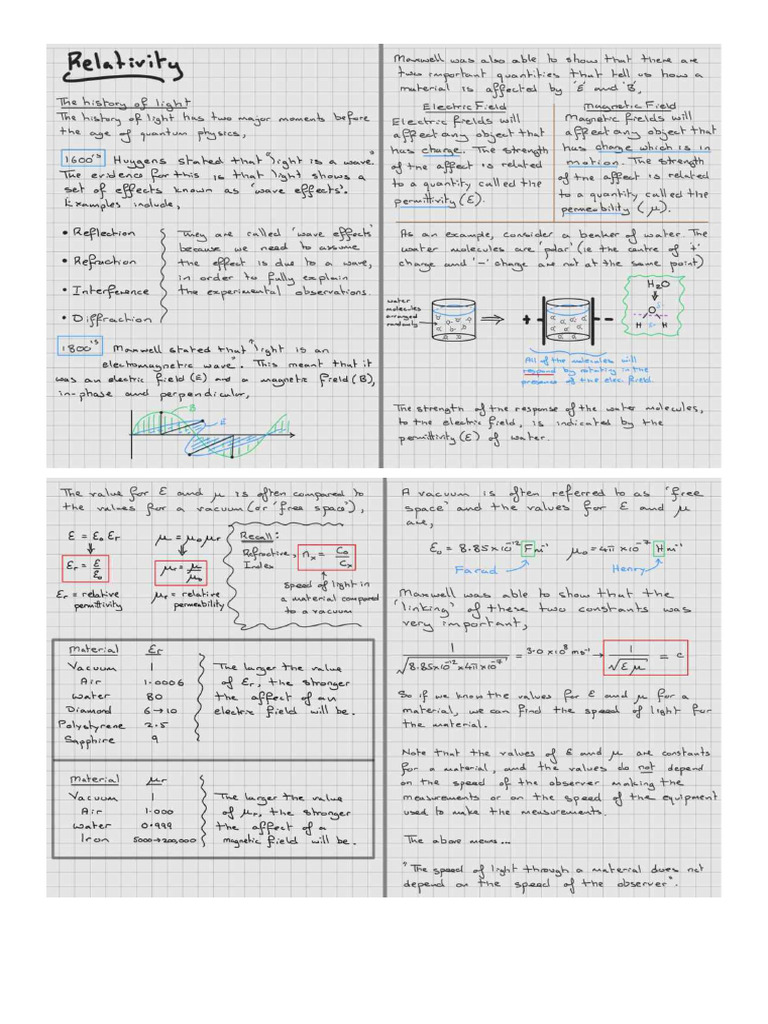 Relativity
The history of light
The history of light has two major moments before
the age of quantum physics,
1600's Huygens stated that "light is a wave."
The evidence for this is that light shows a
set of effects known as 'wave effects'.
Examples include,
• Reflection
• Refraction
• Interference
• Diffraction
They are called 'wave effects'
because we need to assume
the effect is due to a wave,
in order to fully explain
the experimental observations.
1800's Maxwell stated that "light is an
electromagnetic wave". This meant that it
was an electric field (E) and a magnetic field (B),
in-phase and perpendicular,
B
E
Maxwell was also able to show that there are
two important quantities that tell us how a
material is affected by 'E' and 'B',
Electric Field
Electric fields will
affect any object that
has charge. The strength
of the affect is related
to a quantity called the
permittivity (ε).
Magnetic Field
Magnetic fields will
affect any object that
has charge which is in
motion. The strength
of the affect is related
to a quantity called the
permeability (μ).
As an example, consider a beaker of water. The
water molecules are 'polar' (ie the centre of '+'
charge and '-' charge are not at the same point)
water
molecules
arranged
randomly
⇒
+
-
H₂O
δ-
O
H δ+ H
All of the molecules will
respond by rotating in the
presence of the elec. field.
The strength of the response of the water molecules,
to the electric field, is indicated by the
permittivity (ε) of water.
The value for ε and μ is often compared to
the values for a vacuum (or 'free space'),
ε = ε₀ εr
εr = ε/ε₀
εr = relative
permittivity
μ = μ₀ μr
μr = μ/μ₀
μr = relative
permeability
Recall:
Refractive Index, nₓ = C₀/Cₓ
speed of light in
a material compared
to a vacuum
Material εr
Vacuum 1
Air 1.0006
Water 80
Diamond 6→10
Polystyrene 2.5
Sapphire 9
The larger the value
of εr, the stronger
the affect of an
electric field will be.
Material μr
Vacuum 1
Air 1.000
Water 0.999
Iron 5000→200,000
The larger the value
of μr, the stronger
the affect of a
magnetic field will be.
A vacuum is often referred to as 'free
space' and the values for ε and μ
are,
ε₀ = 8.85×10⁻¹² F m⁻¹ μ₀ = 4π×10⁻⁷ H m⁻¹
Farad Henry
Maxwell was able to show that the
'linking' of these two constants was
very important,
1/√(8.85×10⁻¹²×4π×10⁻⁷) = 3.0×10⁸ ms⁻¹ → 1/√(ε μ) = c
So if we know the values for ε and μ for a
material, we can find the speed of light for
the material.
Note that the values of ε and μ are constants
for a material, and the values do not depend
on the speed of the observer making the
measurements or on the speed of the equipment
used to make the measurements.
The above means...
"The speed of light through a material does not
depend on the speed of the observer".